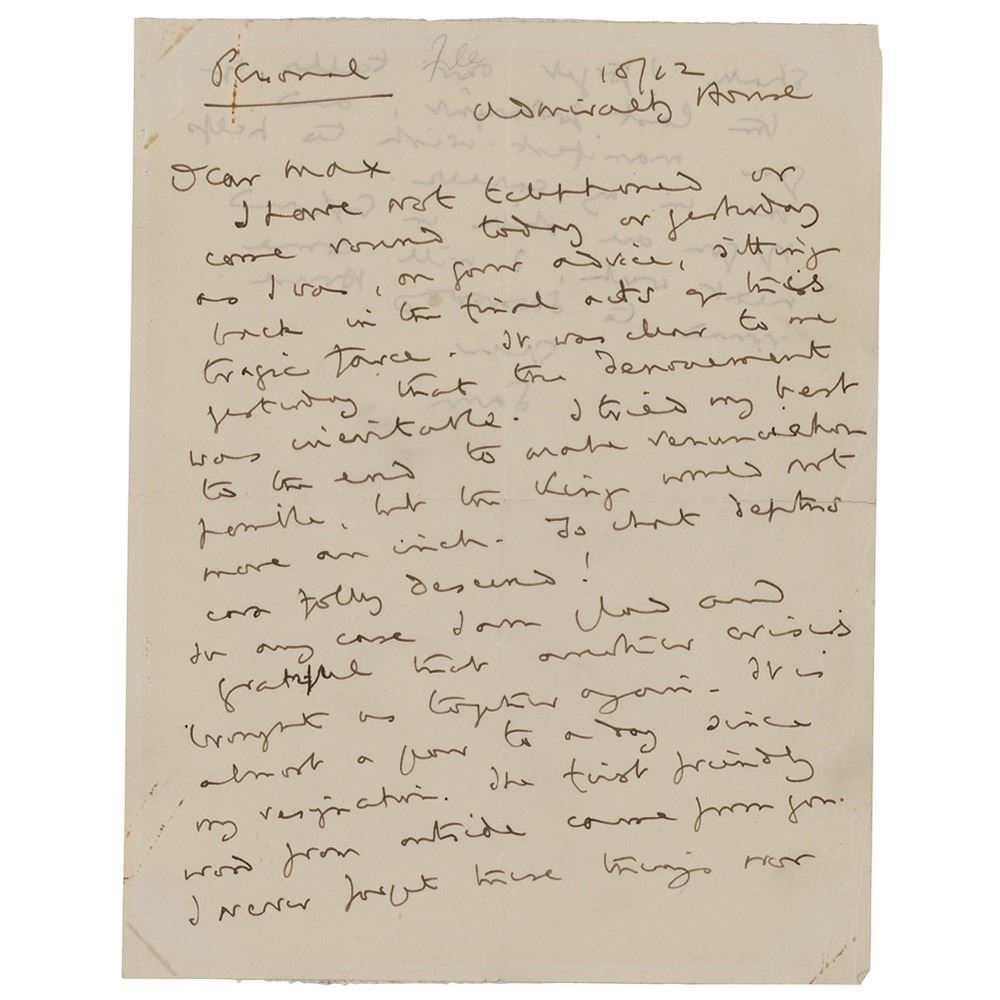 Personal
File
10/12
Admiralty House
Dear Max
I have not telephoned or
come round today or yesterday
as I was, on your advice, sitting
back in the final acts of this
tragic farce. It was clear to me
yesterday that the denouement
was inevitable. I tried my best
to the end to make renunciation
possible, but the King would not
move an inch. To what depths
can folly descend!
In any case I am glad and
grateful that another crisis
brought us together again. It is
almost a year to a day since
my resignation. The first friendly
word from outside came from you.
I never forget these things nor